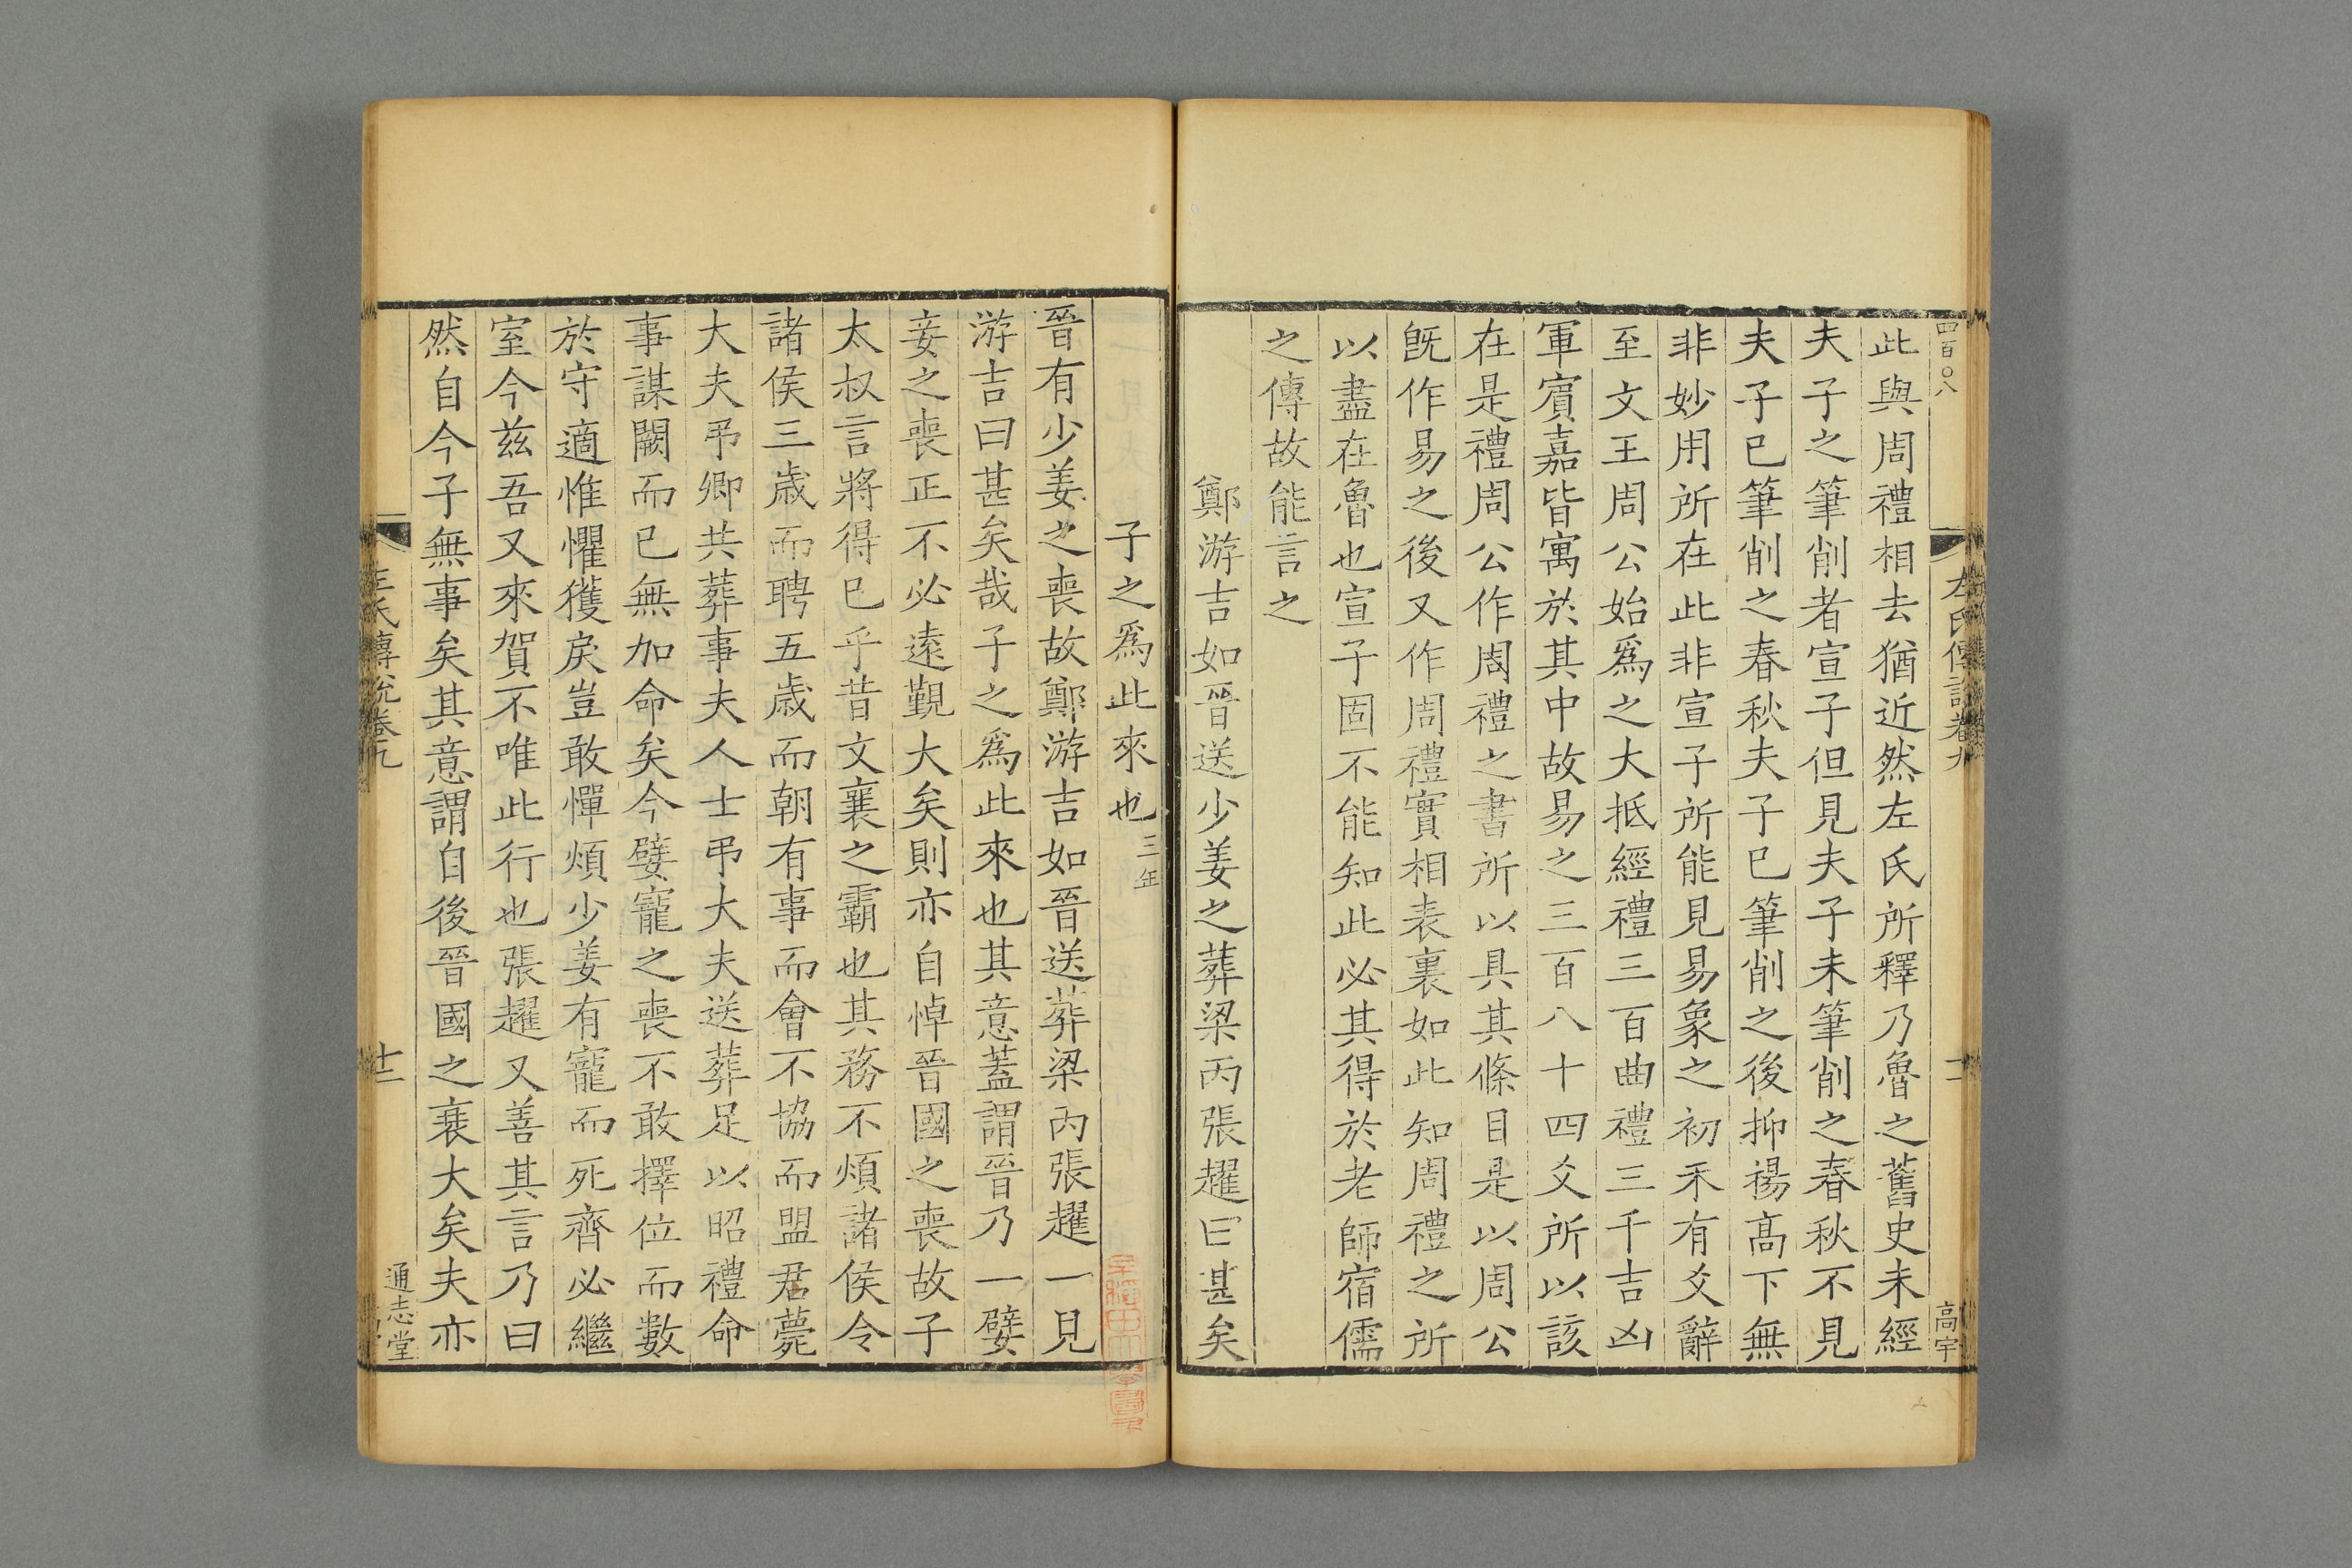 四百〇八
左氏傳說卷九
十一
高宇
此與周禮相去猶近然左氏所釋乃魯之舊史未經
夫子之筆削者宣子但見夫子未筆削之春秋不見
夫子已筆削之春秋夫子已筆削之後抑揚高下無
非妙用所在此非宣子所能見易象之初未有爻辭
至文王周公始爲之大抵經禮三百曲禮三千吉凶
軍賓嘉皆寓於其中故易之三百八十四爻所以該
在是禮周公作周禮之書所以具其條目是以周公
旣作易之後又作周禮實相表裏如此知周禮之所
以盡在魯也宣子固不能知此必其得於老師宿儒
之傳故能言之
鄭游吉如晉送少姜之葬梁丙張趯曰甚矣
子之爲此來也三年
晉有少姜之喪故鄭游吉如晉送葬梁丙張趯一見
游吉曰甚矣哉子之爲此來也其意蓋謂晉乃一嬖
妾之喪正不必遠覲大矣則亦自悼晉國之喪故子
太叔言將得已乎昔文襄之霸也其務不煩諸侯令
諸侯三歲而聘五歲而朝有事而會不協而盟君薨
大夫弔卿共葬事夫人士弔大夫送葬足以昭禮命
事謀闕而已無加命矣今嬖寵之喪不敢擇位而數
於守適惟懼獲戾豈敢憚煩少姜有寵而死齊必繼
室今兹吾又來賀不唯此行也張趯又善其言乃曰
然自今子無事矣其意謂自後晉國之衰大矣夫亦
左氏傳說卷九
十二
通志堂